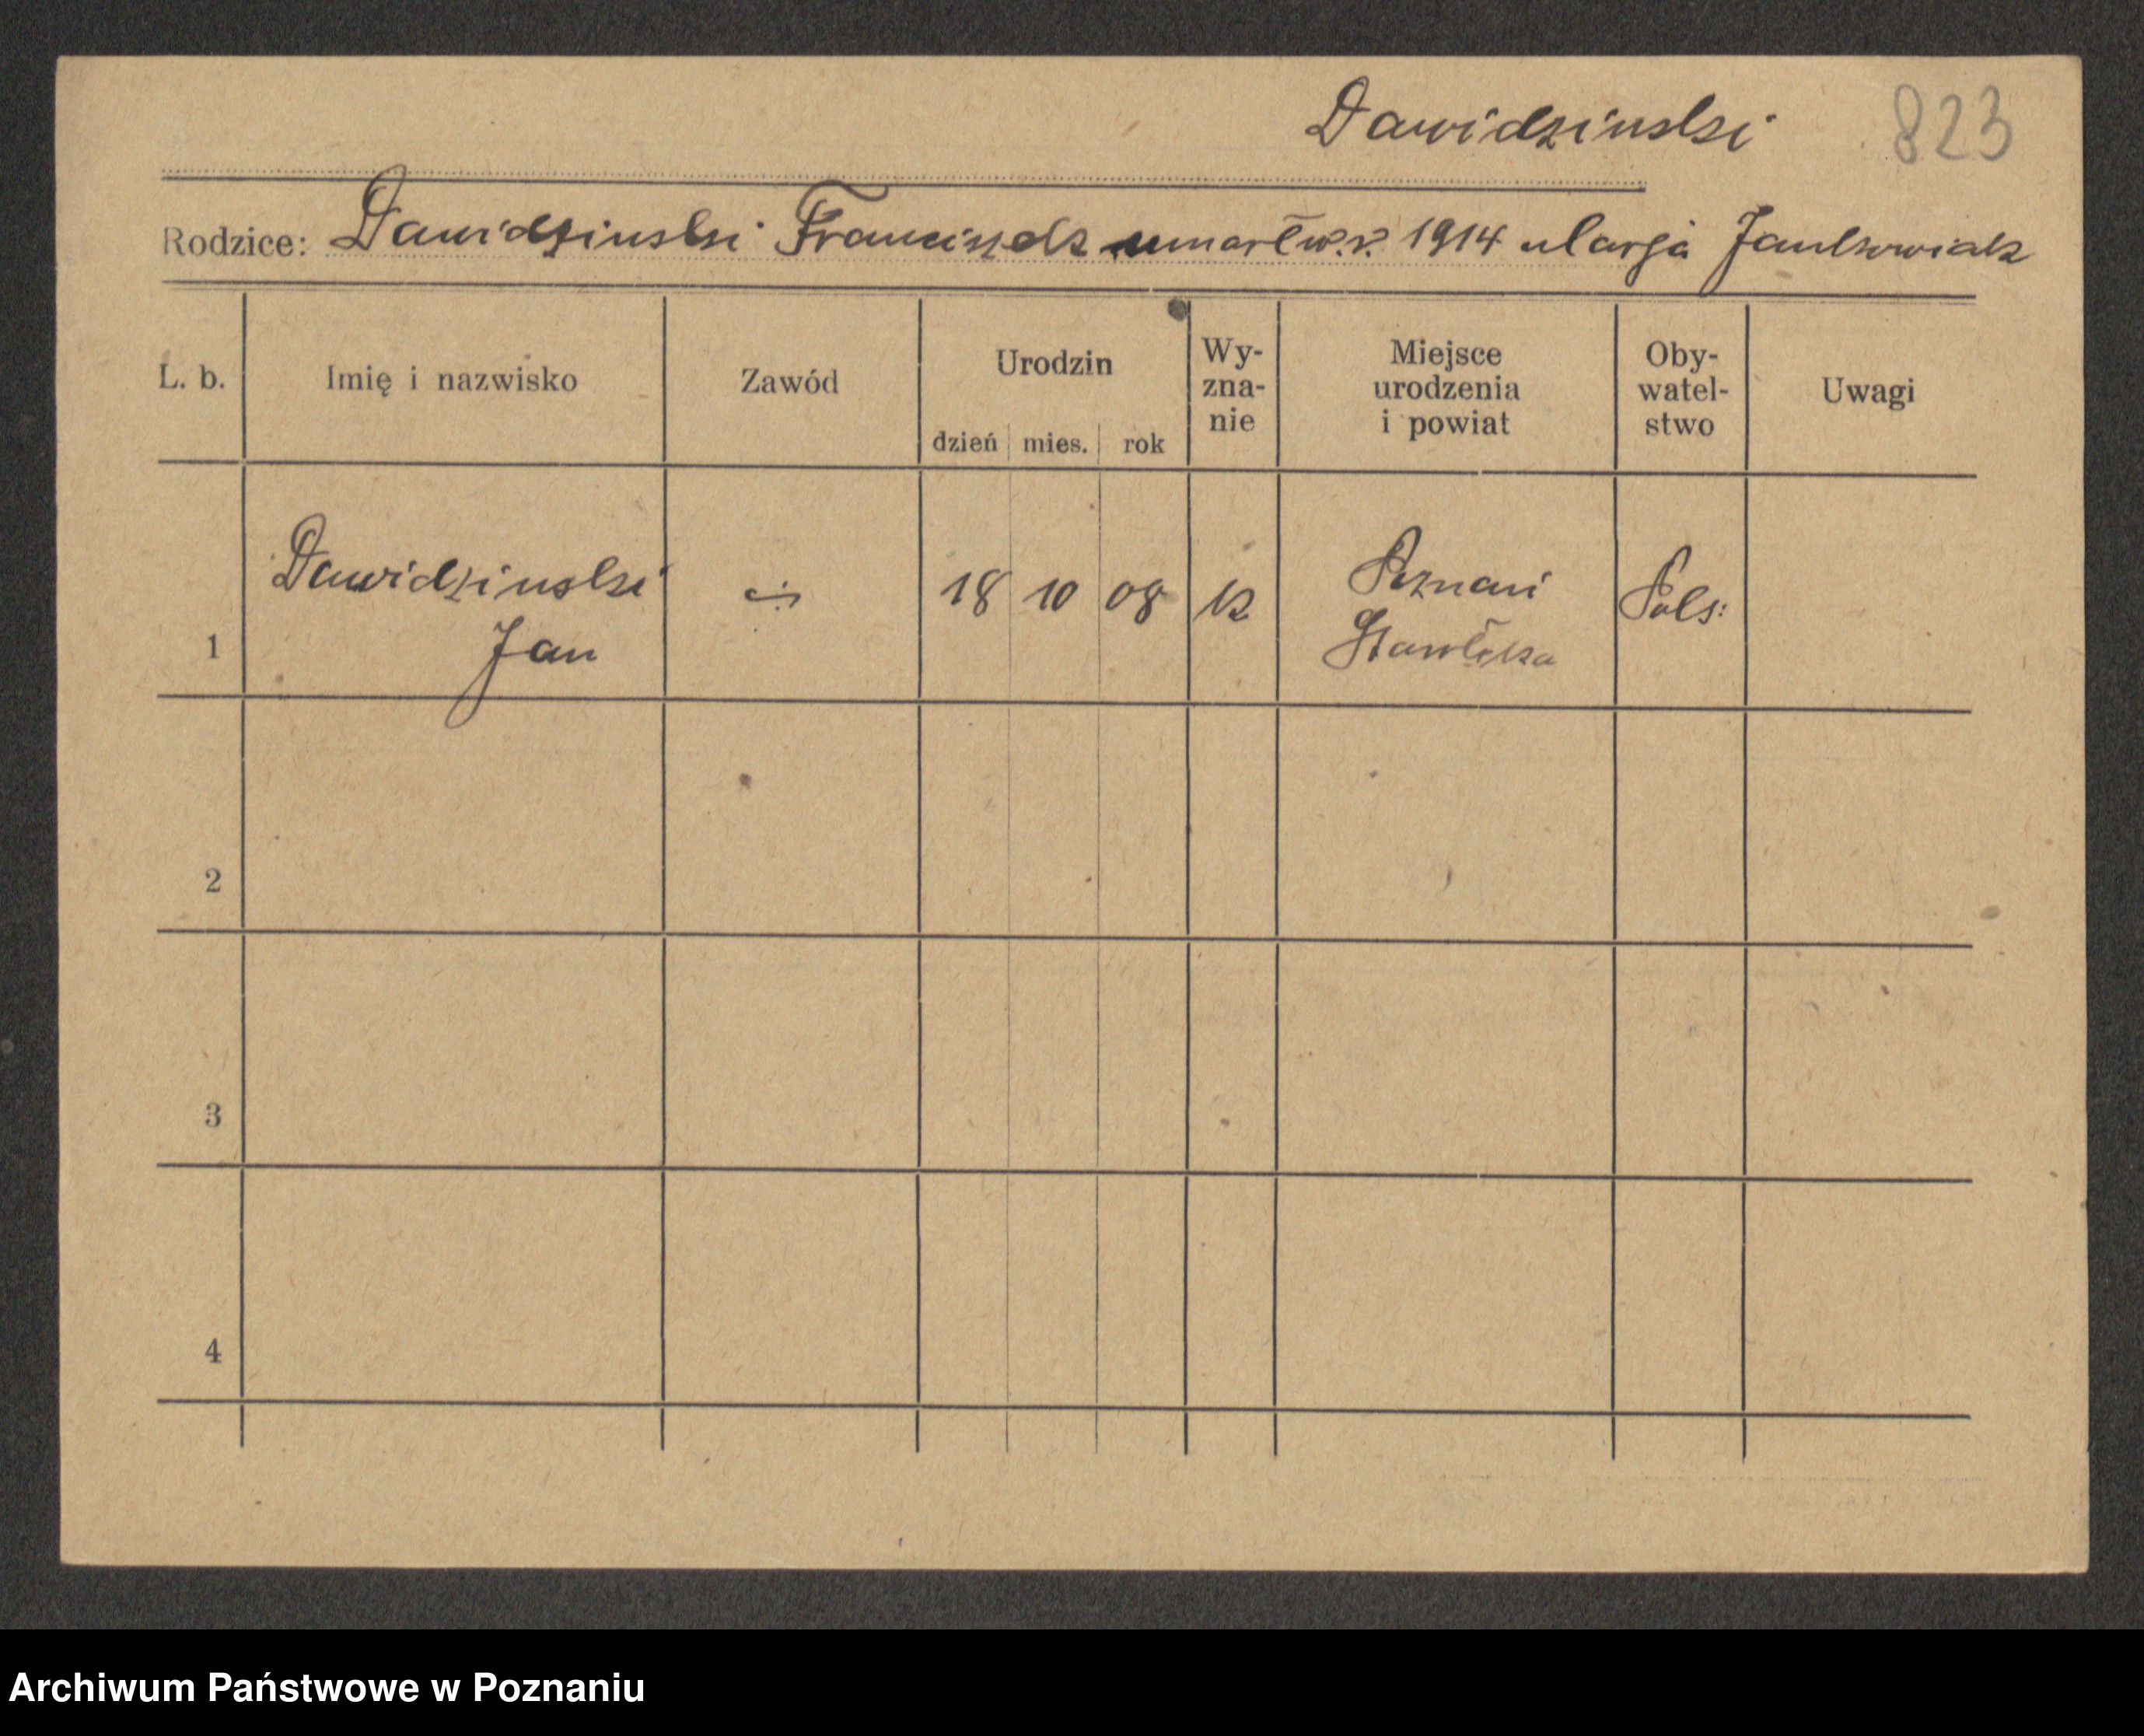 Dawidzinski 823
Rodzice: Dawidzinski Franciszek umarł w.r. 1914 Marja Jankowiak
L. b. Imię i nazwisko Zawód Urodzin Wy- Miejsce Oby- Uwagi
zna- urodzenia watel-
nie i powiat stwo
dzień mies. rok
Dawidzinski 18 10 08 k Poznań Pols:
1 Jan
2
3
4
Archiwum Państwowe w Poznaniu